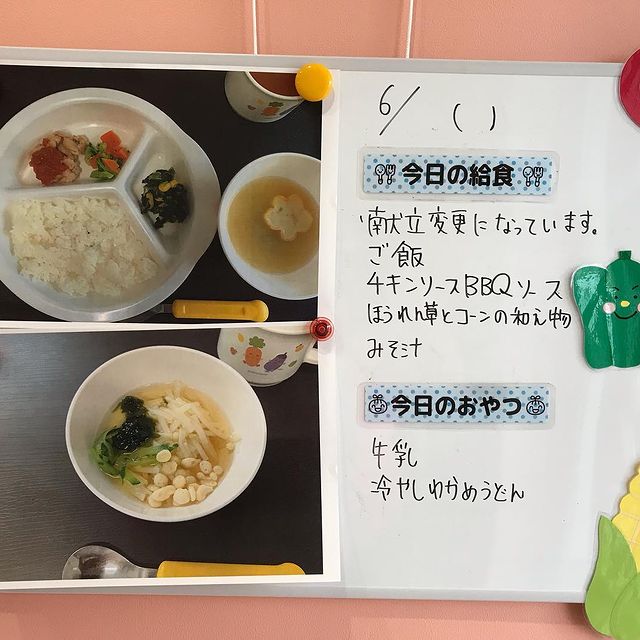 6/ ( )
今日の給食
献立変更になっています。
ご飯
チキンソースBBQソース
ほうれん草とコーンの和え物
みそ汁
今日のおやつ
牛乳
冷やしわかめうどん